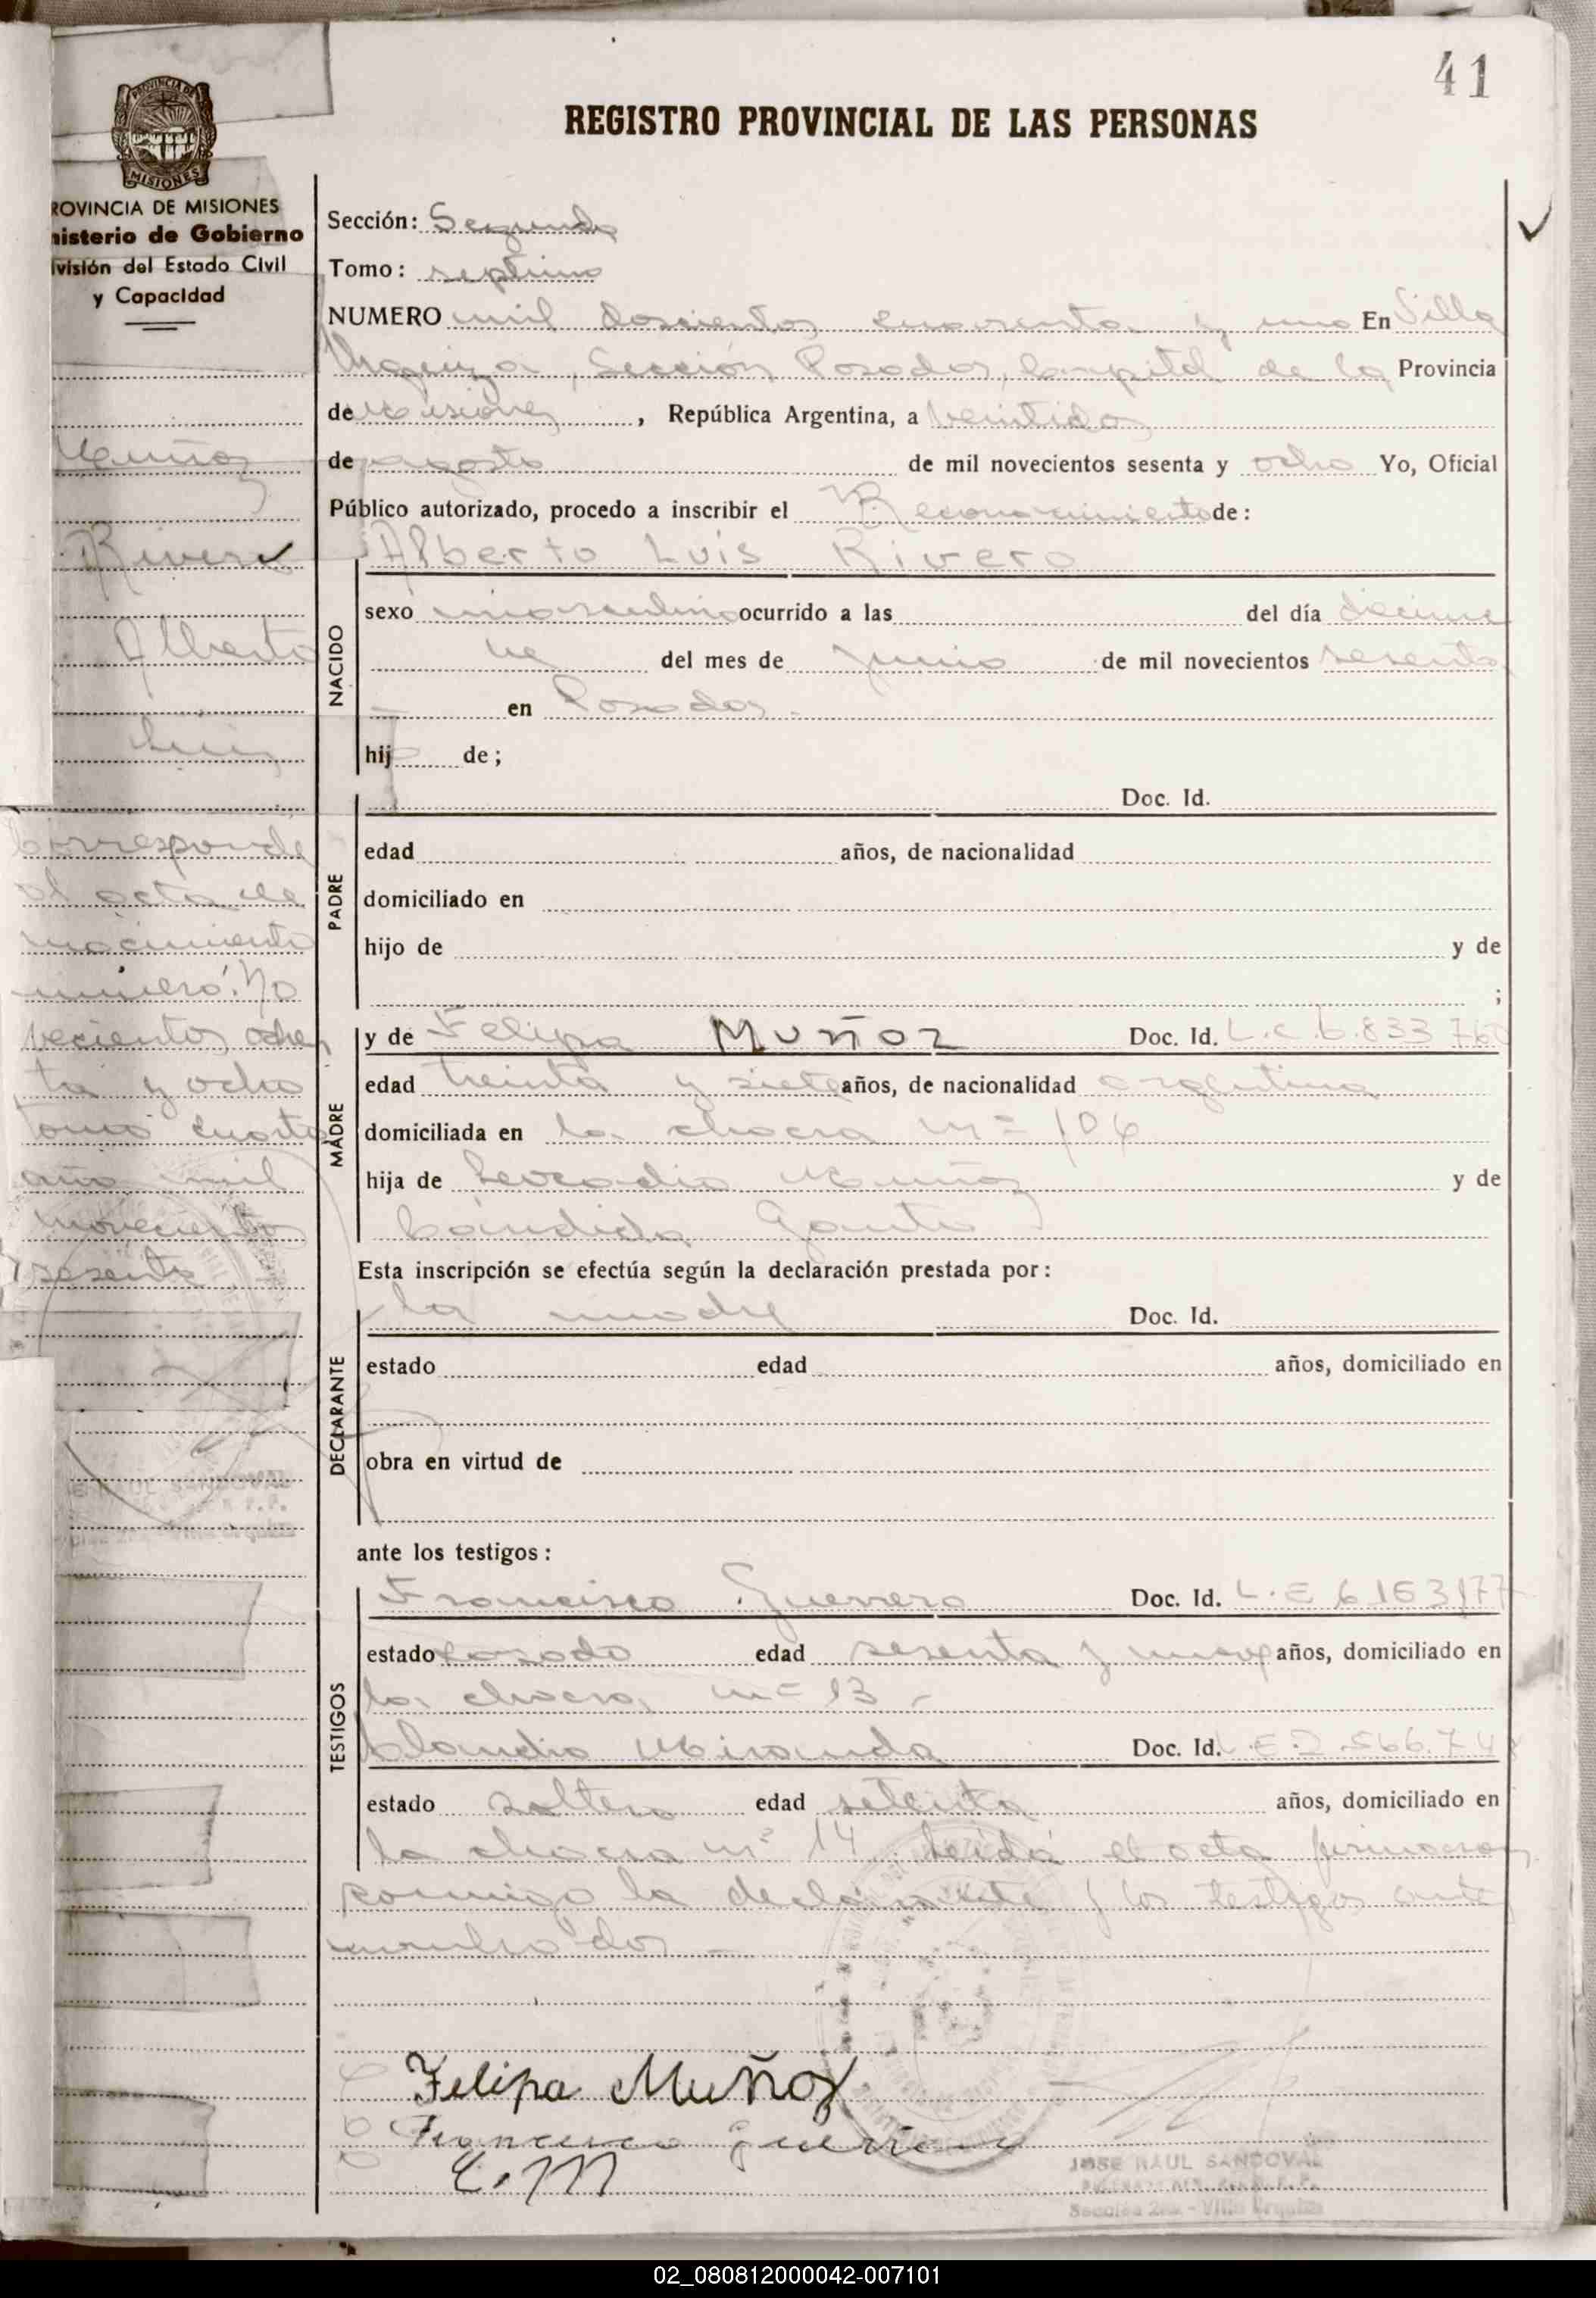 41
REGISTRO PROVINCIAL DE LAS PERSONAS
PROVINCIA DE
MISIONES
ROVINCIA DE MISIONES
nisterio de Gobierno
ivisión del Estado Civil
y Capacidad
Muñoz
Rivero
Alberto
Luis
Corresponde
al acta de
nacimiento
número: No
vecientos ochen
ta y ocho
tomo cuarto
año mil
novecientos
sesenta
Sección: Segunda
Tomo: septimo
NUMERO mil doscientos cuarenta y uno En Villa
Urquiza, Sección Posadas, Capital de la Provincia
de Misiones, República Argentina, a veintidos
de agosto de mil novecientos sesenta y ocho Yo, Oficial
Público autorizado, procedo a inscribir el Reconocimiento de:
Alberto Luis Rivero
NACIDO
sexo masculino ocurrido a las del día decimo
del mes de junio de mil novecientos sesenta
en Posadas.
hijo de;
PADRE
Doc. Id.
edad años, de nacionalidad
domiciliado en
hijo de y de
;
MADRE
y de Felipa MUÑOZ Doc. Id. L.C. 6.833 760
edad treinta y siete años, de nacionalidad argentina
domiciliada en la chacra nº 106
hija de Leocadio Muñoz y de
Cándida Gauto
Esta inscripción se efectúa según la declaración prestada por:
DECLARANTE
la madre Doc. Id.
estado edad años, domiciliado en
obra en virtud de
ante los testigos:
TESTIGOS
Francisco Guerrero Doc. Id. L.E 6.163.177
estado casado edad sesenta y nueve años, domiciliado en
la chacra nº 13 -
Claudio Miranda Doc. Id. L.E. 2.566.748
estado soltero edad setenta años, domiciliado en
la chacra nº 14 leida el acta firmaron
conmigo la declarante y los testigos ante
nombrados -
Felipa Muñoz
Francisco Guerrero
C. M
JOSE RAUL SANDOVAL
Sección 2da. - Villa Urquiza
02_080812000042-007101